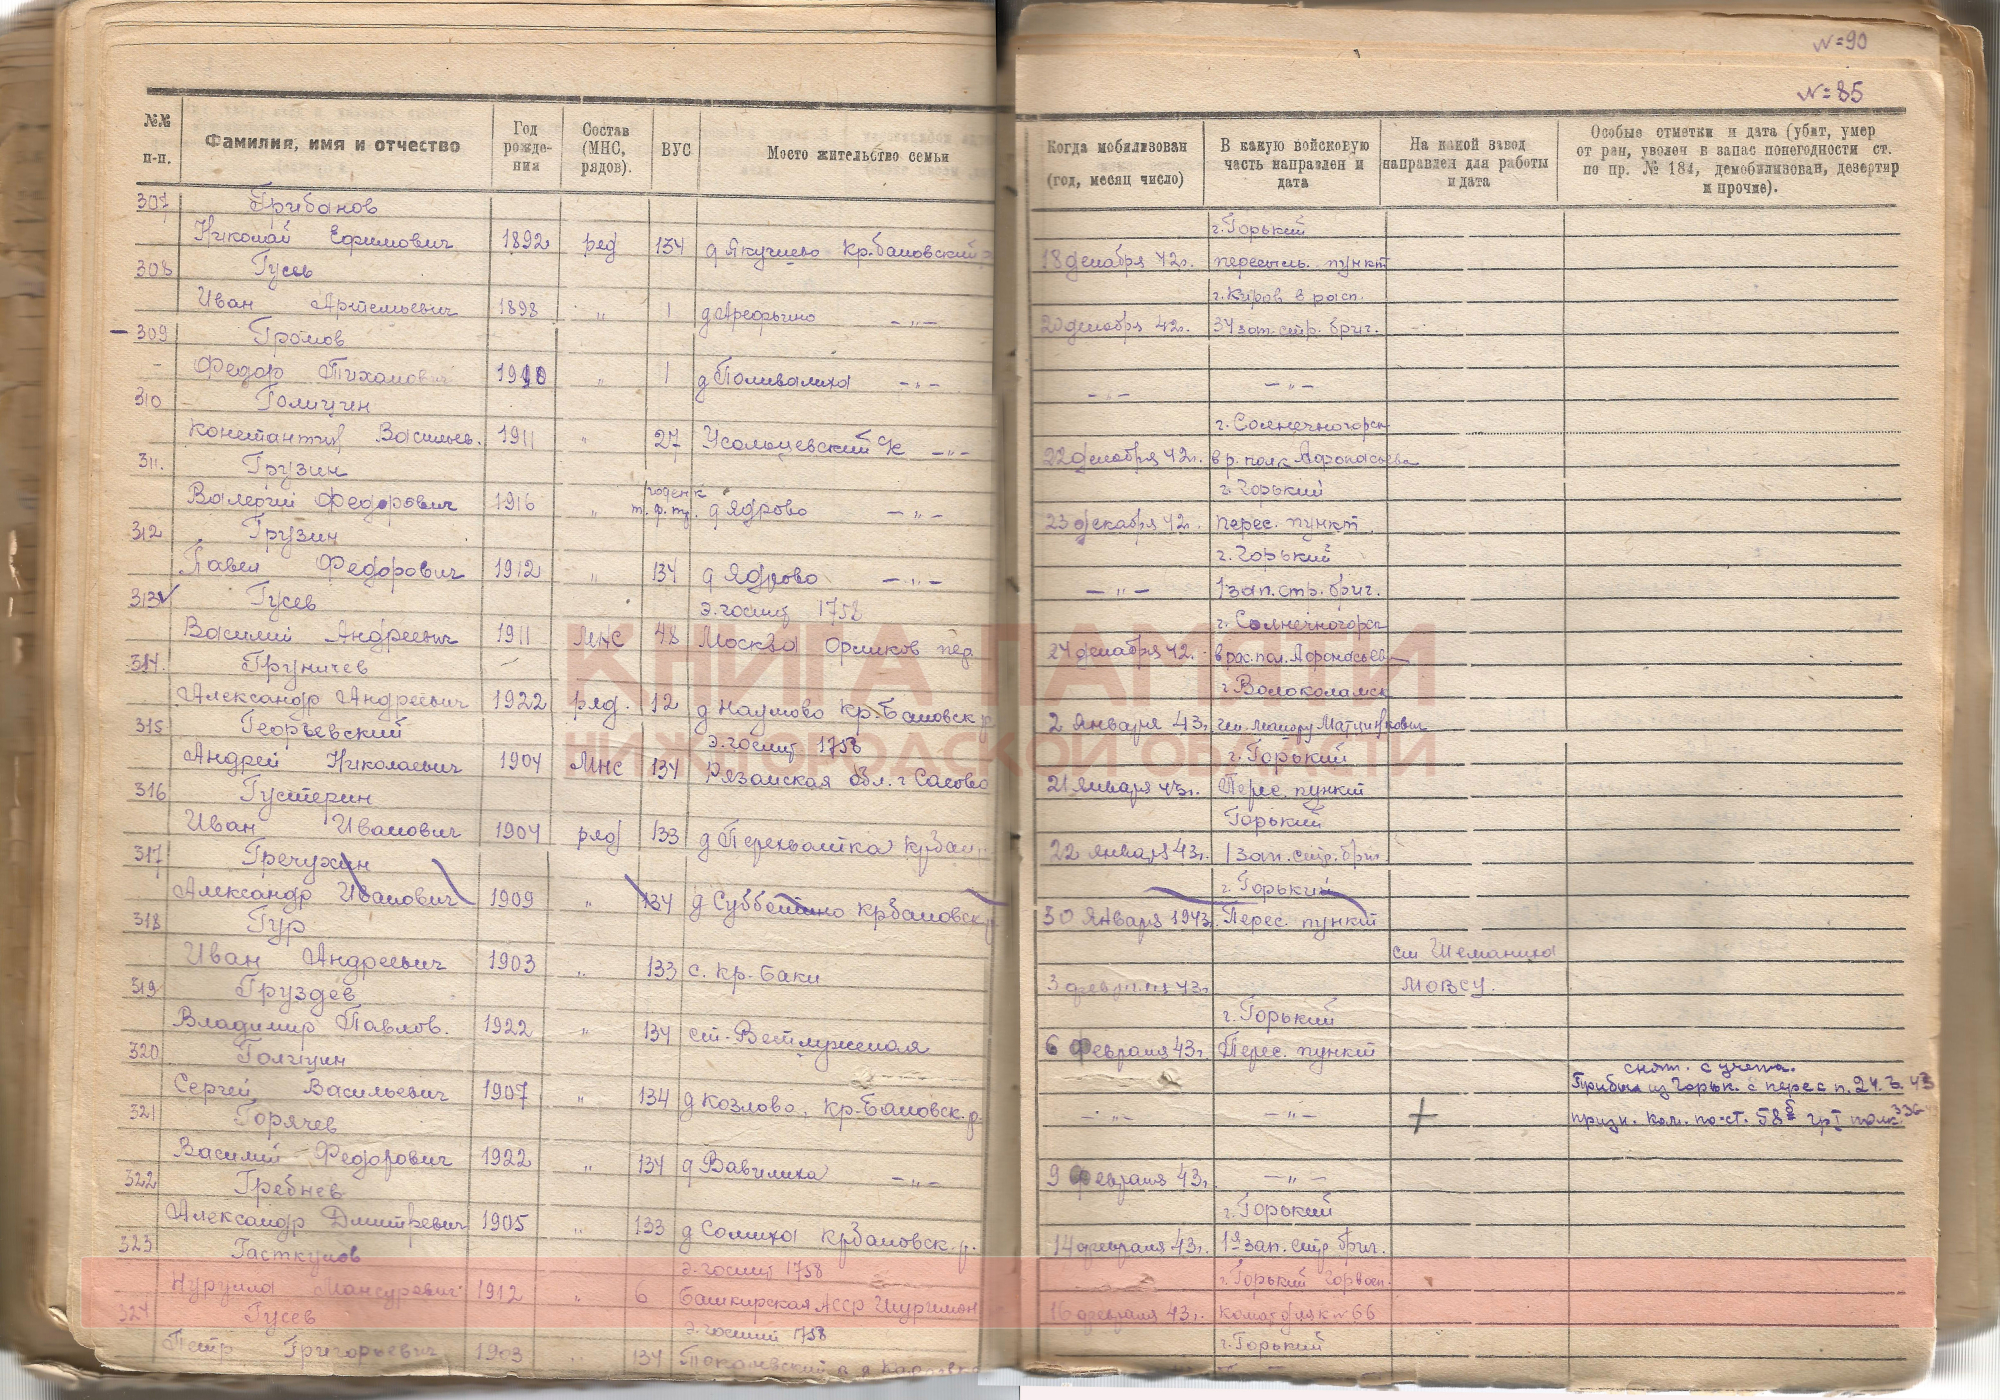 N=90
N=85
№№ п-п.
Фамилия, имя и отчество
Год рожде-ния
Состав (МНС, рядов).
ВУС
Место жительство семьи
Когда мобилизован (год, месяц число)
В какую войсковую часть направлен и дата
На какой завод направлен для работы и дата
Особые отметки и дата (убит, умер от ран, уволен в запас понегодности ст. по пр. № 184, демобилизован, дезертир и прочие).
307 Грибанов г. Горький
Николай Ефимович 1892 ряд 134 д Якушево Кр.баковский р 18 декабря 42г. пересыль. пункт
308 Гусев г. Киров в расп.
Иван Артемьевич 1898 " 1 д Арефьино -"- 20 декабря 42г. 34 зап. стр. бриг.
309 Громов
Федор Тихонович 1910 " 1 д Поливалиха -"- -"- -"-
310 Голицин г. Солнечногорск
Константин Васильев. 1911 " 27 Усольцевский с/к -"- 22 декабря 42г. в р. полк Афонасьева
311. Грузин г. Горький
Валерий Федорович 1916 " годен к т. ф. тр. д Ядрово -"- 23 декабря 42г. перес. пункт
312 Грузин г. Горький
Павел Федорович 1912 " 134 д Ядрово -"- -"- 1 зап. стр. бриг.
313 Гусев э. госпит 1758 г. Солнечногорск
Василий Андреевич 1911 МНС 48 Москва Орликов пер 24 декабря 42. в рж. пол. Афонасьев
314. Груничев г. Волоколамск
Александр Андреевич 1922 ряд. 12 д Наумово Кр-Баковск р 2 января 43г.
315 Георгевский э. госпит 1758 г. Горький
Андрей Николаевич 1904 МНС 134 Рязанская обл. г Сасово 21 января 43г. Перес. пункт
316 Густерин Горький
Иван Иванович 1904 ряд 133 д Перехватка кр баки 22 января 43г. 1 зап. стр. бриг.
317 Гречухин г. Горький
Александр Иванович 1909 " 134 д Субботино кр баковск р 30 января 1943 Перес. пункт
318 Гур ст Шеманиха
Иван Андреевич 1903 " 133 с. Кр-Баки 3 февраля 43г. МОВСУ.
319 Груздев г. Горький
Владимир Павлов. 1922 " 134 ст. Ветлужская 6 февраля 43г. Перес. пункт
320 Голицин снят. с учета.
Прибыл из Горьк. с перес п. 24.3.43
Сергей Васильевич 1907 " 134 д Козлово, Кр-Баковск. р. -"- -"- + призн. ком. по ст. 58б гр I полк 336
321 Горячев
Василий Федорович 1922 " 134 д Вавилиха -"- 9 февраля 43г. -"-
322 Гребнев г. Горький
Александр Дмитревич 1905 " 133 д Сомиха кр баковск. р. 14 февраля 43г. 1й зап. стр. бриг.
323 Гасткулов э. госпит 1758 г. Горький Горвоен.
Нурулла Мансурович 1912 " 6 Башкирская АССР 16 февраля 43г. 66
324 Гусев э. госпит 1758 г. Горький
Петр Григорьевич 1903 134
КНИГА ПАМЯТИ
НИЖГОРОДСКОЙ ОБЛАСТИ